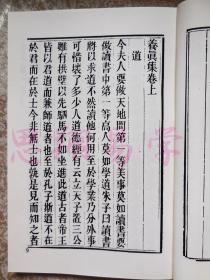 養真集卷上
道
今夫人要做天地間第一等美事莫如讀書要
做讀書中第一等高人莫如學道朱子曰讀書
將以求道不然讀他何用至於學業乃分外事
可惜壞了多少人道德經有云立天子置三公
雖有拱璧以先駟馬不如坐進此道古者帝王
皆以君道而兼師道者也至於孔子斯道不在
於君而在於士今非無士也就是見而知之者